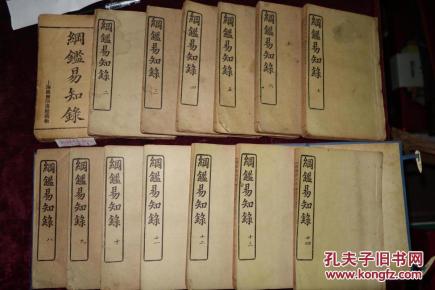 綱鑑易知錄
綱鑑易知錄 二
綱鑑易知錄 三
綱鑑易知錄 四
綱鑑易知錄 五
綱鑑易知錄 六
綱鑑易知錄 七
綱鑑易知錄 八
綱鑑易知錄 九
綱鑑易知錄 十
綱鑑易知錄 十一
綱鑑易知錄 十二
綱鑑易知錄 十三
綱鑑易知錄 十四
孔夫子旧书网
www.kongfz.com